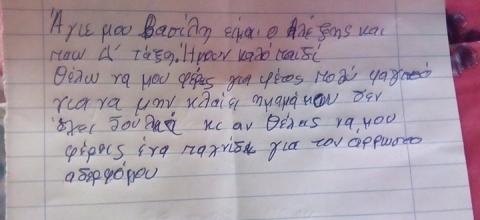 Άγιε μου Βασίλη είμαι ο Αλέξης και
παω Δ' τάξη. Ήμουν καλό παιδί
Θέλω να μου φέρεις για φέτος πολύ φαγητό
για να μην κλαίει η μαμά μου δεν
έχει δουλειά κι αν θέλεις να μου
φέρεις ένα παιχνίδι για τον άρρωστο
αδερφό μου